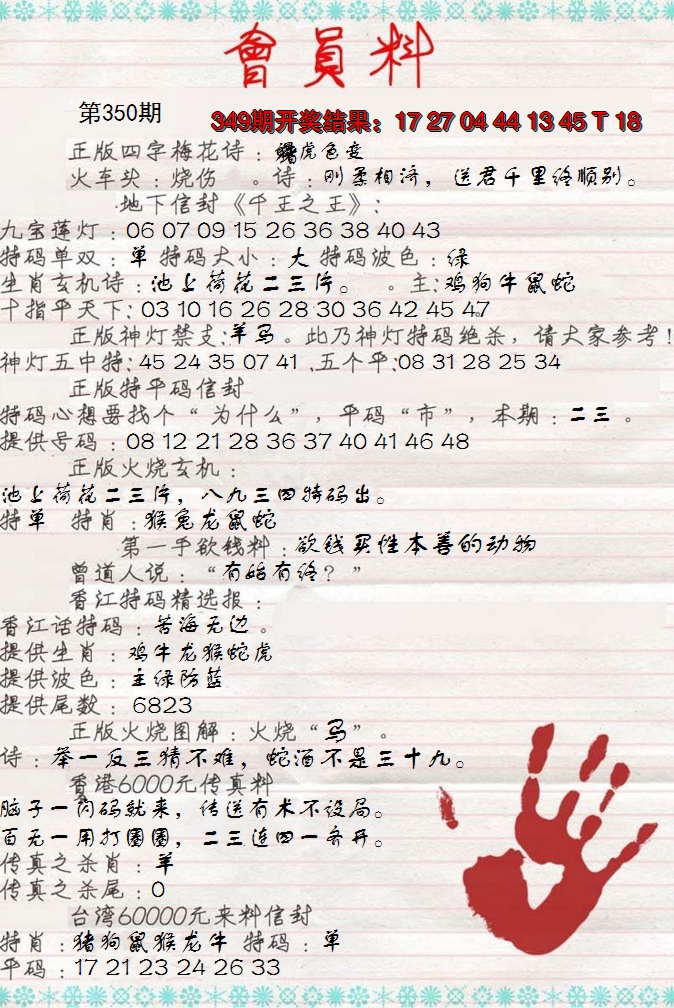 會員料
第350期
349期开奖结果：17 27 04 44 13 45 T 18
正版四字梅花诗：虎色变
火车头：烧伤 。诗：刚柔相济，送君千里终顺别。
地下信封《千王之王》：
九宝莲灯：06 07 09 15 26 36 38 40 43
特码单双：单 特码大小：大 特码波色：绿
生肖玄机诗：池上荷花二三片。 。主：鸡狗牛鼠蛇
十指平天下：03 10 16 26 28 30 36 42 45 47
正版神灯禁支：羊马。此乃神灯特码绝杀，请大家参考！
神灯五中特：45 24 35 07 41 .五个平：08 31 28 25 34
正版特平码信封
特码心想要找个“为什么”，平码“市”，本期：二三 。
提供号码：08 12 21 28 36 37 40 41 46 48
正版火烧玄机：
池上荷花二三片，八九三四特码出。
特单 特肖：猴兔龙鼠蛇
第一手欲钱料：欲钱买性本善的动物
曾道人说：“有始有终？”
香江特码精选报：
香江话特码：苦海无边。
提供生肖：鸡牛龙猴蛇虎
提供波色：主绿防蓝
提供尾数：6823
正版火烧图解：火烧“马”。
诗：举一反三猜不难，蛇酒不是三十九。
香港6000元传真料
脑子一闪码就来，传送有术不设局。
百无一用打圈圈，二三连四一齐开。
传真之杀肖：羊
传真之杀尾：0
台湾60000元来料信封
特肖：猪狗鼠猴龙牛 特码：单
平码：17 21 23 24 26 33